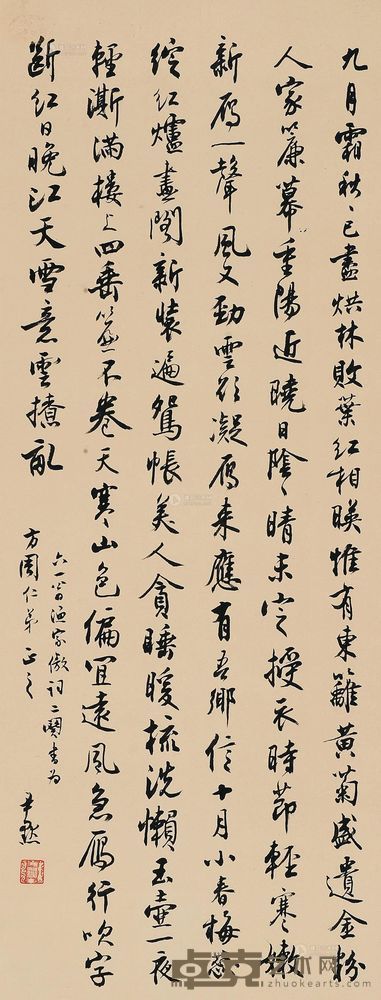 九月霜秋〻已盡烘林敗葉紅相暎惟有東籬黃菊盛遺金粉
人家簾幕重陽近曉日陰〻晴未定授衣時節輕寒嫩
新鴈一聲風又勁雲欲凝鴈來應有吾鄉信十月小春梅蕊
綻紅爐畫閣新裝遍鴛帳美人貪睡暖梳洗懶玉壺一夜
輕澌滿樓上四垂簾不卷天寒山色偏宜遠風急鴈行吹字
斷紅日晚江天雪意雲撩亂
六一翁漁家傲詞二闋書為
方周仁弟正之
尹默
卓克艺术网
www.zhuokearts.com